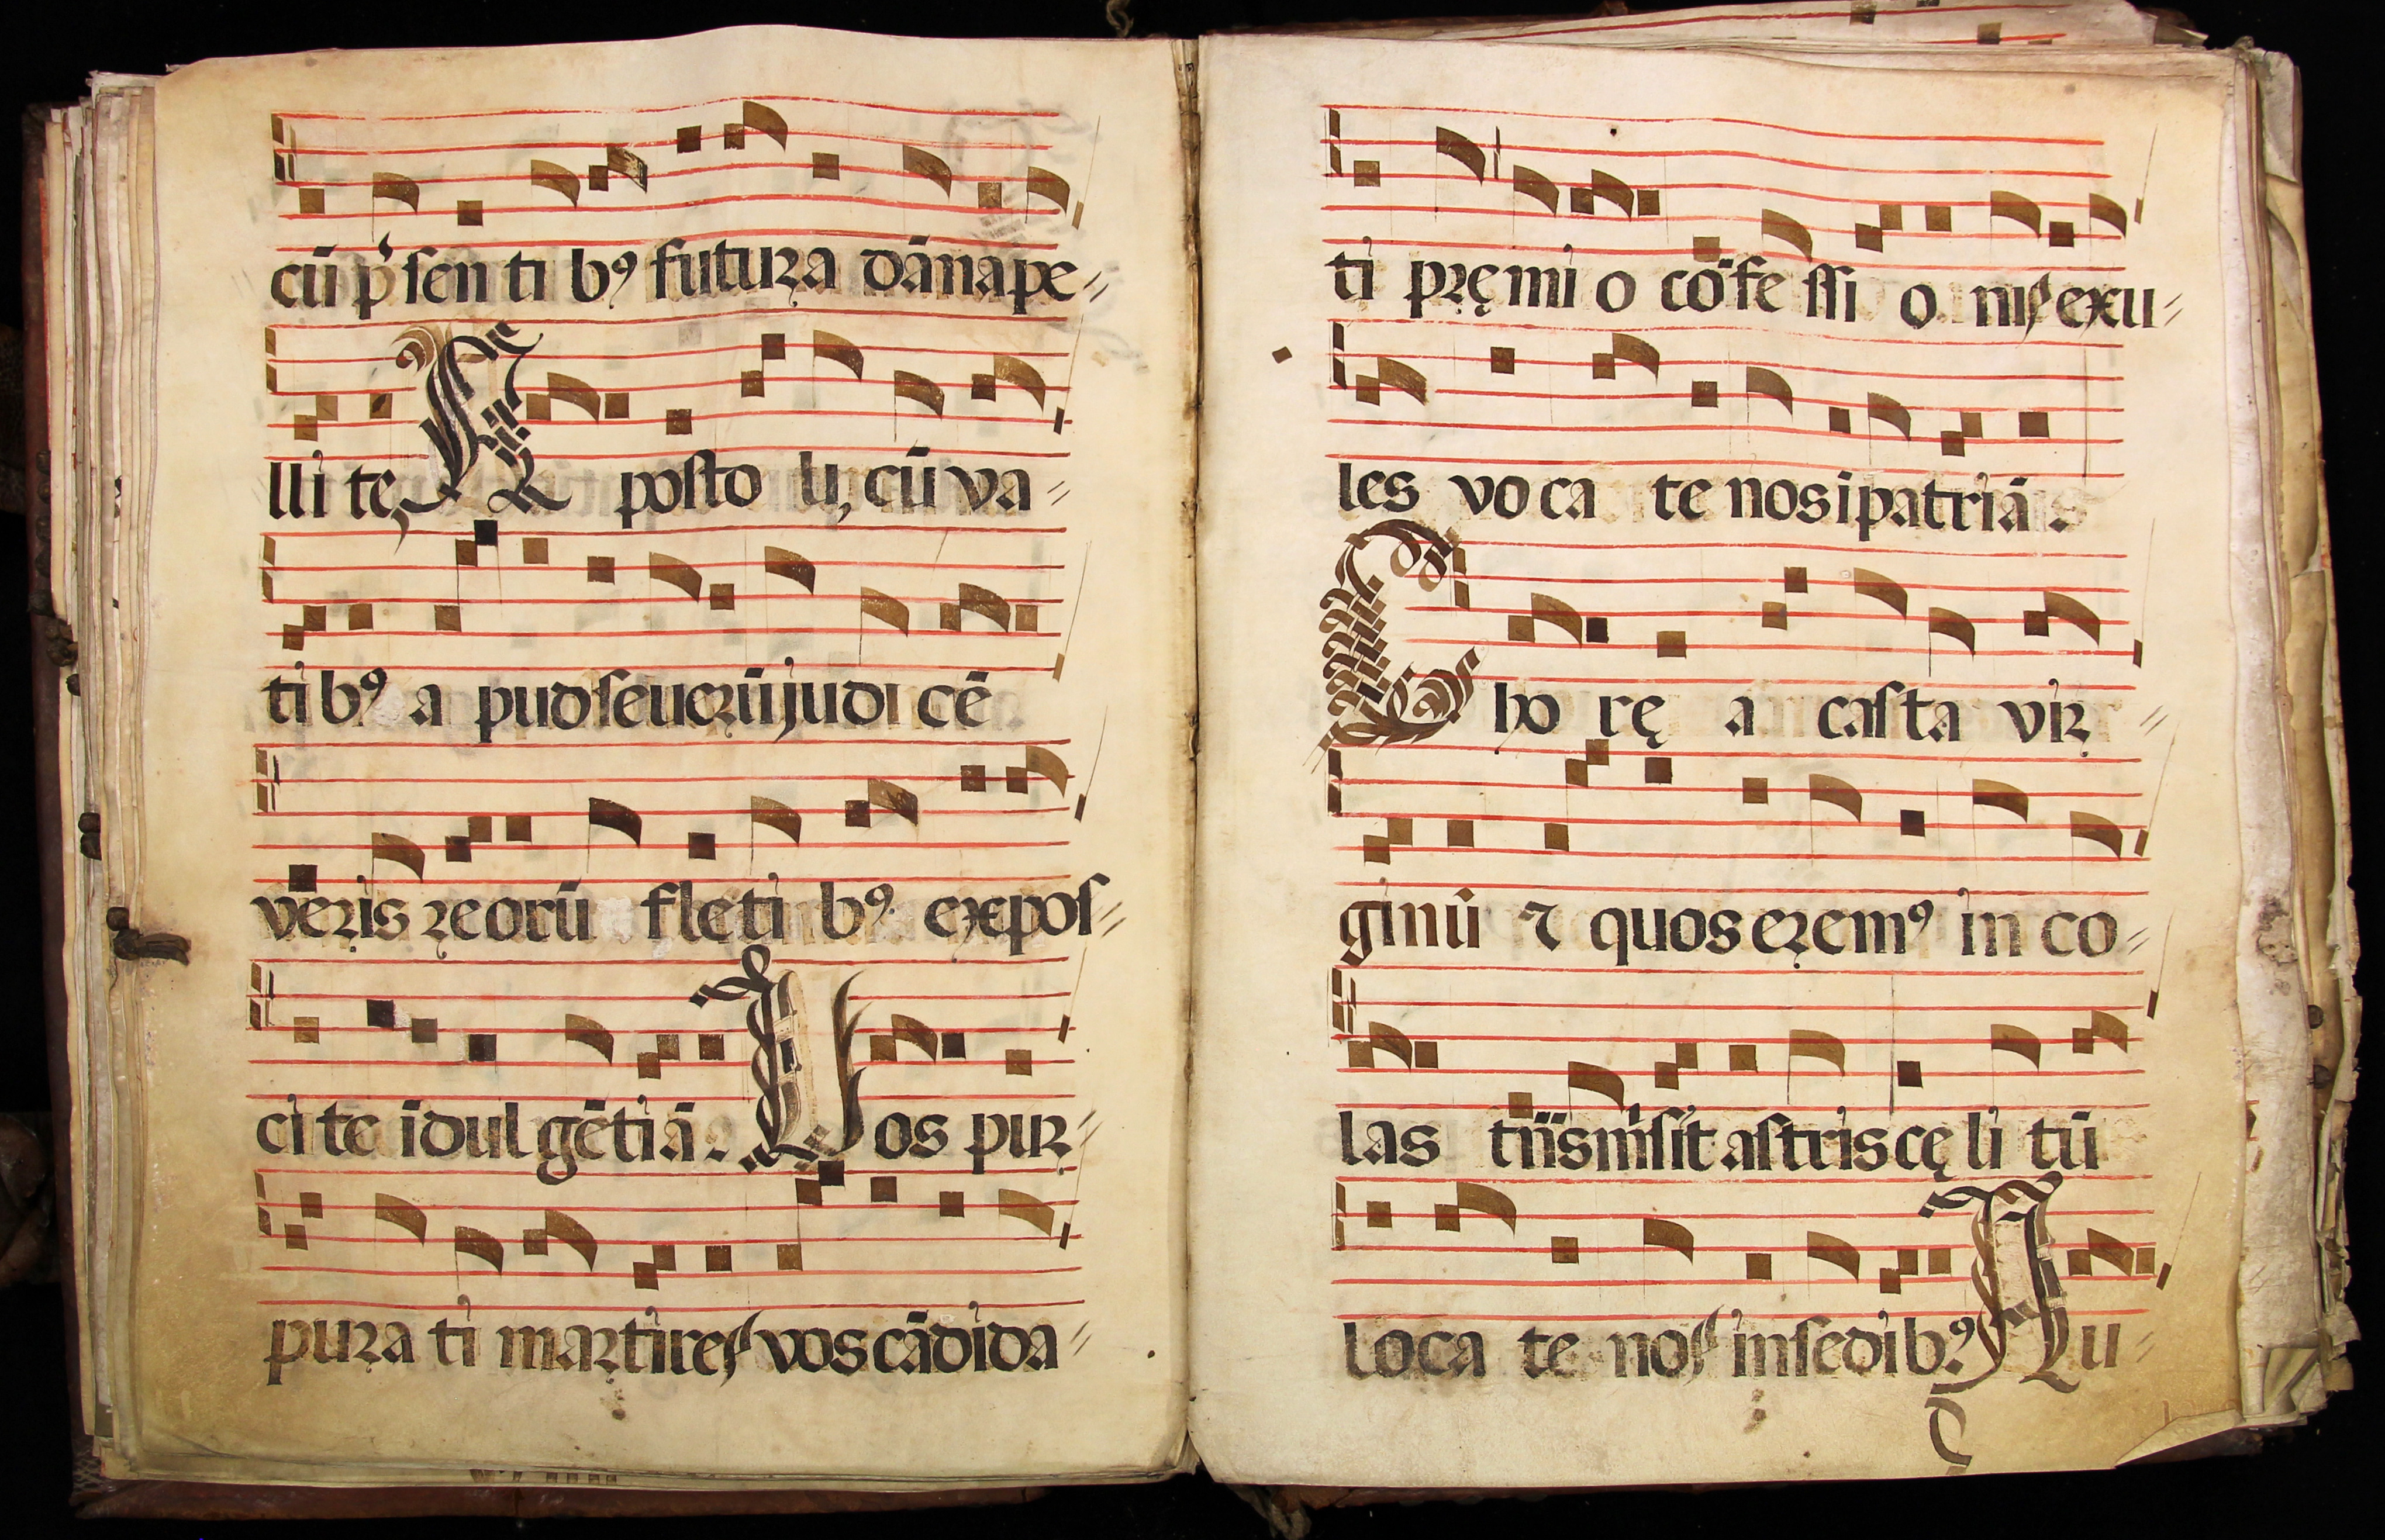 cū p̉ſen ti bꝯ futuꝛa dānape〃
lli te, A poſto li, cū va〃
ti bꝯ a pudſeueꝛūjudi cē
veꝛis ꝛeorū fleti bꝯ expoſ〃
ci te īdulgētiā. Vos piꝛ〃
puꝛa ti maꝛtires vos cādida〃
ti pꝛęmi o cōfe ſſi o nis exu〃
les vo ca te nos ipatriā.
Cho rę a caſta viꝛ〃
ginū ⁊ quos eꝛemꝯ in co〃
las tr̄ſmiſit aſtris cęli tū
loca te nos inſedibꝯ. Au〃